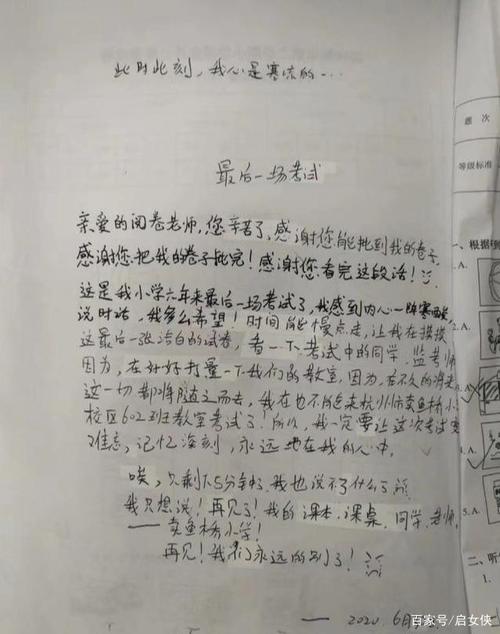 此时此刻，我心是寒凉的…
最后一场考试
亲爱的阅卷老师，您辛苦了，感谢您能批到我的卷子，
感谢您把我的卷子批完！感谢您看完这段话！
这是我小学六年来最后一场考试了，我感到内心一阵寒
说时话，我多么希望！时间能慢点走，让我在摸摸
这最后一张洁白的试卷，看一下考试中的同学、监考师
因为，在好好打量一下我们的教室，因为，在不久的将来
这一切都将随之而去，我在也不能来杭州市卖鱼桥小
校区602班教室考试了！所以，我一定要让这次考试
难忘，记忆深刻，永远地在我的心中。
唉，只剩下5分钟了，我也说不了什么了
我只想说！再见了！我的课本、课桌、同学、老师，
——卖鱼桥小学！
再见！我们永远的别了！
—— 2020 6月
题 次
等级标准
一、根据
A.
2.A.
3.A
4.A
5.A.
二、听
百家号/启女侠